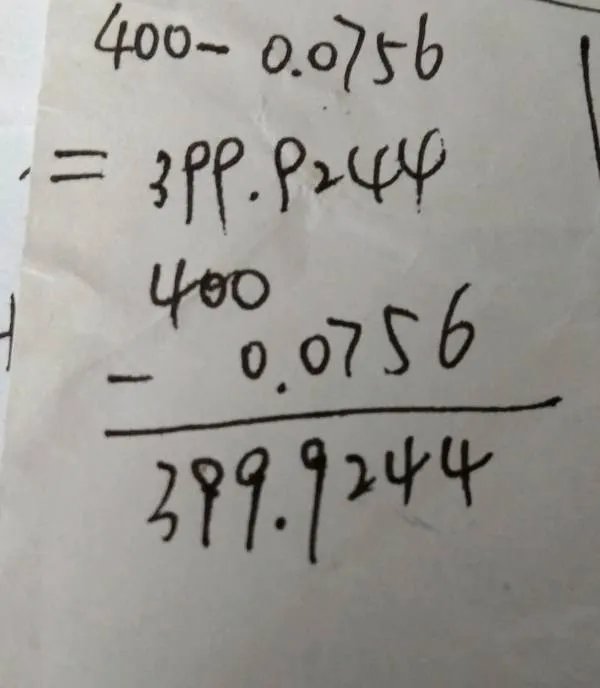 400-0.0756
=399.9244
400
- 0.0756
399.9244